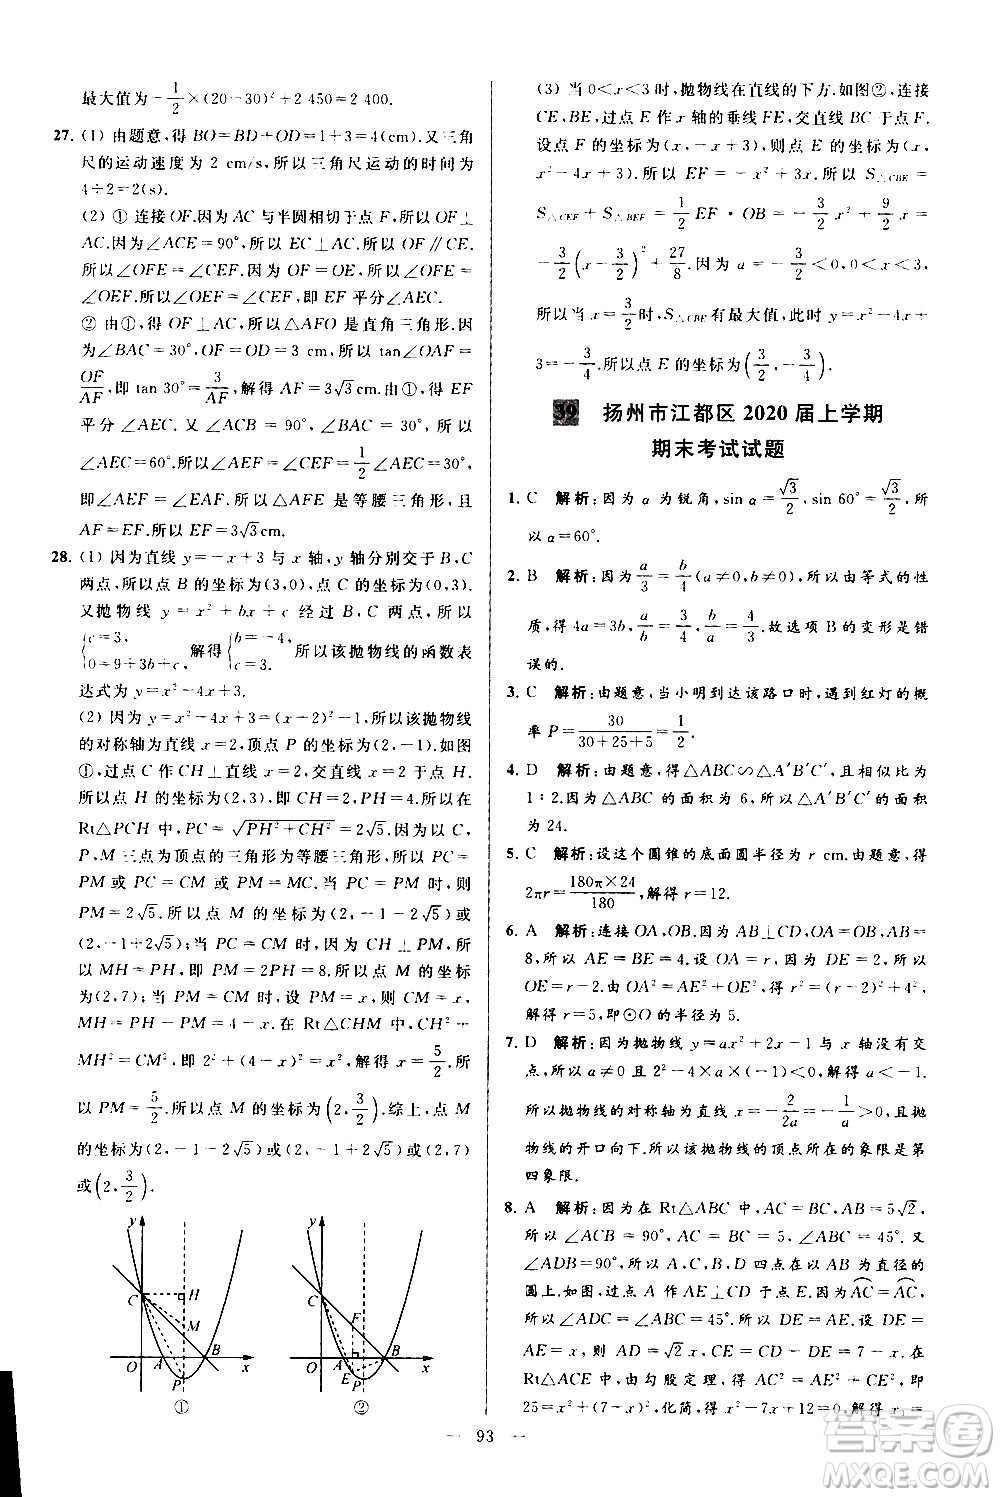 最大值为 $-\frac{1}{2}$×(20-30)²+2 450=2 400.
27. (1) 由题意,得 BO=BD+OD=1+3=4(cm).又三角
尺的运动速度为 2 cm/s,所以三角尺运动的时间为
4÷2=2(s).
(2) ① 连接 OF.因为 AC 与半圆相切于点 F,所以 OF⊥
AC.因为∠ACE=90°,所以 EC⊥AC.所以 OF∥CE.
所以∠OFE=∠CEF.因为 OF=OE,所以∠OFE=
∠OEF.所以∠OEF=∠CEF,即 EF 平分∠AEC.
② 由①,得 OF⊥AC,所以△AFO 是直角三角形.
因为∠BAC=30°,OF=OD=3,所以 tan∠OAF=
$\frac{OF}{AF}$,即 tan 30°=$\frac{3}{AF}$,解得 AF=3√3cm.由①,得 EF
平分∠AEC.因为∠BAC=30°,∠ACB=90°,所以
∠AEC=60°.所以∠AEF=∠CEF=$\frac{1}{2}$∠AEC=30°,
即∠AEF=∠EAF.所以△AFE 是等腰三角形,且
AF=EF.所以 EF=3√3cm.
28. (1) 因为直线 y=-x+3 与 x 轴,y 轴分别交于 B,C
两点,所以点 B 的坐标为(3,0),点 C 的坐标为(0,3).
又抛物线 y=x²+bx+c 经过 B,C 两点,所以
{c=3, 0=9+3b+c, 解得{b=-4, c=3. 所以该抛物线的函数表
达式为 y=x²-4x+3.
(2) 因为 y=x²-4x+3=(x-2)²-1,所以该抛物线
的对称轴为直线 x=2,顶点 P 的坐标为(2,-1).如图
①,过点 C 作 CH⊥直线 x=2,交直线 x=2 于点 H.
所以点 H 的坐标为(2,3).所以 CH=2,PH=4.所以在
Rt△PCH 中,PC=√(PH²+CH²)=2√5.因为以 C,
P,M 三点为顶点的三角形为等腰三角形,所以 PC=
PM 或 PC=CM 或 PM=MC.当 PC=PM 时,则
PM=2√5.所以点 M 的坐标为(2,-1-2√5)或
(2,-1+2√5);当 PC=CM 时,因为 CH⊥PM,所以
MH=PH,即 PM=2PH=8.所以点 M 的坐标为
(2,7);当 PM=CM 时,设 PM=CM=x,则
MH=PH-PM=4-x.在 Rt△CHM 中,CH²+
MH²=CM²,即 2²+(4-x)²=x²,解得 x=$\frac{5}{2}$.所
以 PM=$\frac{5}{2}$.所以点 M 的坐标为(2,$\frac{3}{2}$).综上,点 M
的坐标为(2,-1-2√5)或(2,-1+2√5)或(2,7)
或(2,$\frac{3}{2}$).
y C H M O A B x P ①
y C F O A E B x P ②
(3) 当 0<x<3 时,抛物线在直线的下方.如图②,连接
CE,BE,过点 E 作 x 轴的垂线 FE,交直线 BC 于点 F.
设点 F 的坐标为(x,-x+3),则点 E 的坐标为(x,
x²-4x+3).所以 EF=-x²+3x.所以 S△CBE=
S△CEF+S△BEF=$\frac{1}{2}$EF·OB=-$\frac{3}{2}$x²+$\frac{9}{2}$x=
-$\frac{3}{2}$(x-$\frac{3}{2}$)²+$\frac{27}{8}$.因为 a=-$\frac{3}{2}$<0,0<x<3,
所以当 x=$\frac{3}{2}$时,S△CBE有最大值,此时 y=x²-4x+
3=-$\frac{3}{4}$.所以点 E 的坐标为($\frac{3}{2}$,-$\frac{3}{4}$).
39 扬州市江都区 2020 届上学期
期末考试试题
1. C 解析:因为 α 为锐角,sin α=$\frac{√3}{2}$,sin 60°=$\frac{√3}{2}$,所
以 α=60°.
2. B 解析:因为 $\frac{a}{3}$=$\frac{b}{4}$(a≠0,b≠0),所以由等式的性
质,得 4a=3b,$\frac{a}{b}$=$\frac{3}{4}$,$\frac{b}{a}$=$\frac{4}{3}$.故选项 B 的变形是错
误的.
3. C 解析:由题意,当小明到达该路口时,遇到红灯的概
率 P=$\frac{30}{30+25+5}$=$\frac{1}{2}$.
4. D 解析:由题意,得△ABC∽△A′B′C′,且相似比为
1∶2.因为△ABC 的面积为 6,所以△A′B′C′的面积
为 24.
5. C 解析:设这个圆锥的底面圆半径为 r cm.由题意,得
2πr=$\frac{180π×24}{180}$,解得 r=12.
6. A 解析:连接 OA,OB.因为 AB⊥CD,OA=OB,AB=
8,所以 AE=BE=4.设 OA=r,因为 DE=2,所以
OE=r-2.由 OA²=AE²+OE²,得 r²=(r-2)²+4²,
解得 r=5,即⊙O 的半径为 5.
7. D 解析:因为抛物线 y=ax²+2x-1 与 x 轴没有交
点,所以 a≠0 且 2²-4a×(-1)<0,解得 a<-1.
所以抛物线的对称轴为直线 x=-$\frac{2}{2a}$=-$\frac{1}{a}$>0,抛
物线的开口向下.所以该抛物线的顶点所在的象限是第
四象限.
8. A 解析:因为在 Rt△ABC 中,AC=BC,AB=5√2,
所以∠ACB=90°,AC=BC=5,∠ABC=45°.又
∠ADB=90°,所以 A,C,B,D 四点在以 AB 为直径的
圆上.如图,过点 A 作 AE⊥CD 于点 E.因为AC=AC,
所以∠ADC=∠ABC=45°.所以 DE=AE.设 DE=
AE=x,则 AD=√2x,CE=CD-DE=7-x.在
Rt△ACE 中,由勾股定理,得 AC²=AE²+CE²,即
25=x²+(7-x)²,化简,得 x²-7x+12=0,解得 x₁=
— 93 —
答案圈
MXQE.COM